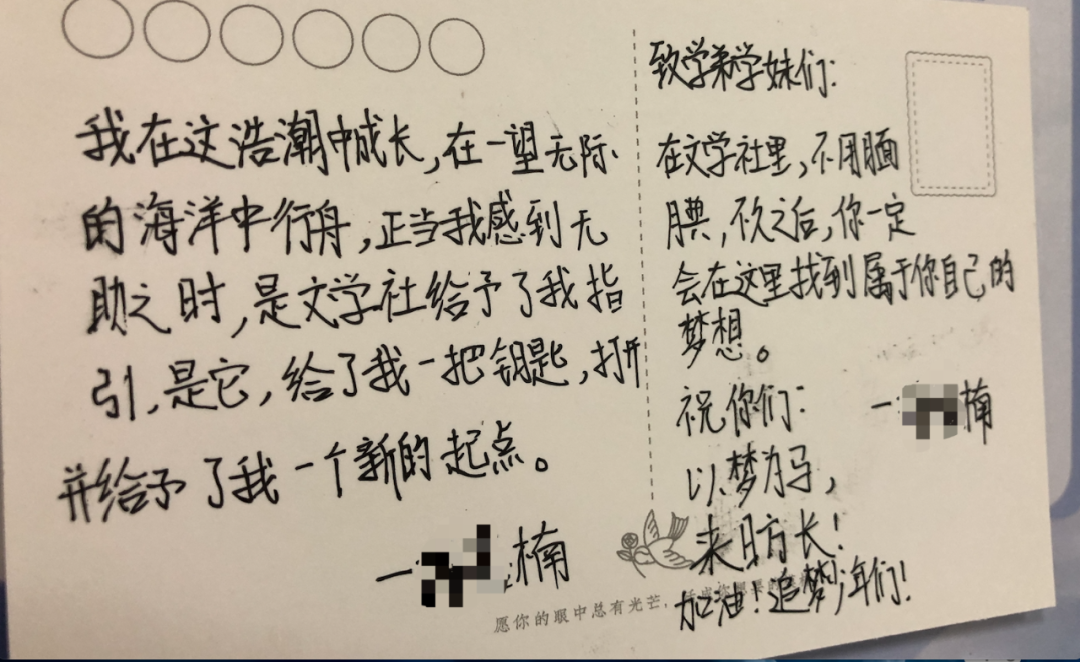 我在这浩潮中成长,在一望无际
的海洋中行舟,正当我感到无
助之时,是文学社给予了我指
引,是它,给了我一把钥匙,打开
并给予了我一个新的起点。
一 楠
致学弟学妹们:
在文学社里,不用腼
腆,不久之后,你一定
会在这里找到属于你自己的
梦想。
祝你们:
一 楠
以梦为马,
来日方长!
加油!追梦少年们!
愿你的眼中总有光芒,